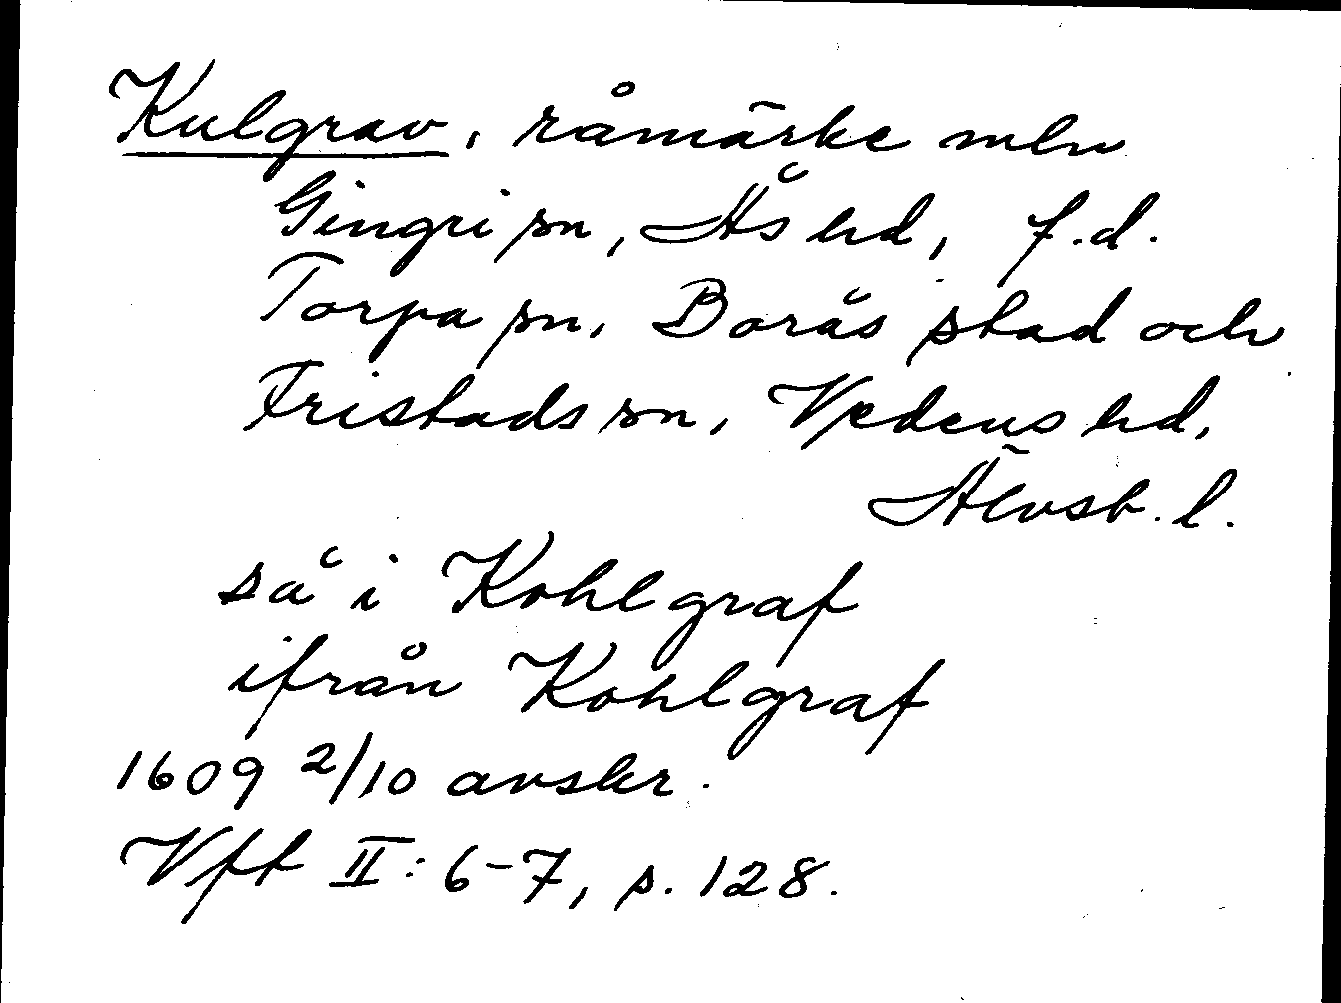 Kulgrav, råmärke mln
Gingri sn, Ås hd, f.d.
Torpa sn, Borås stad och
Fristads sn, Vedens hd,
Älvsb. l.
så i Kohlgraf
ifrån Kohlgraf
1609 2/10 avskr.
Vft II: 6-7, s. 128.